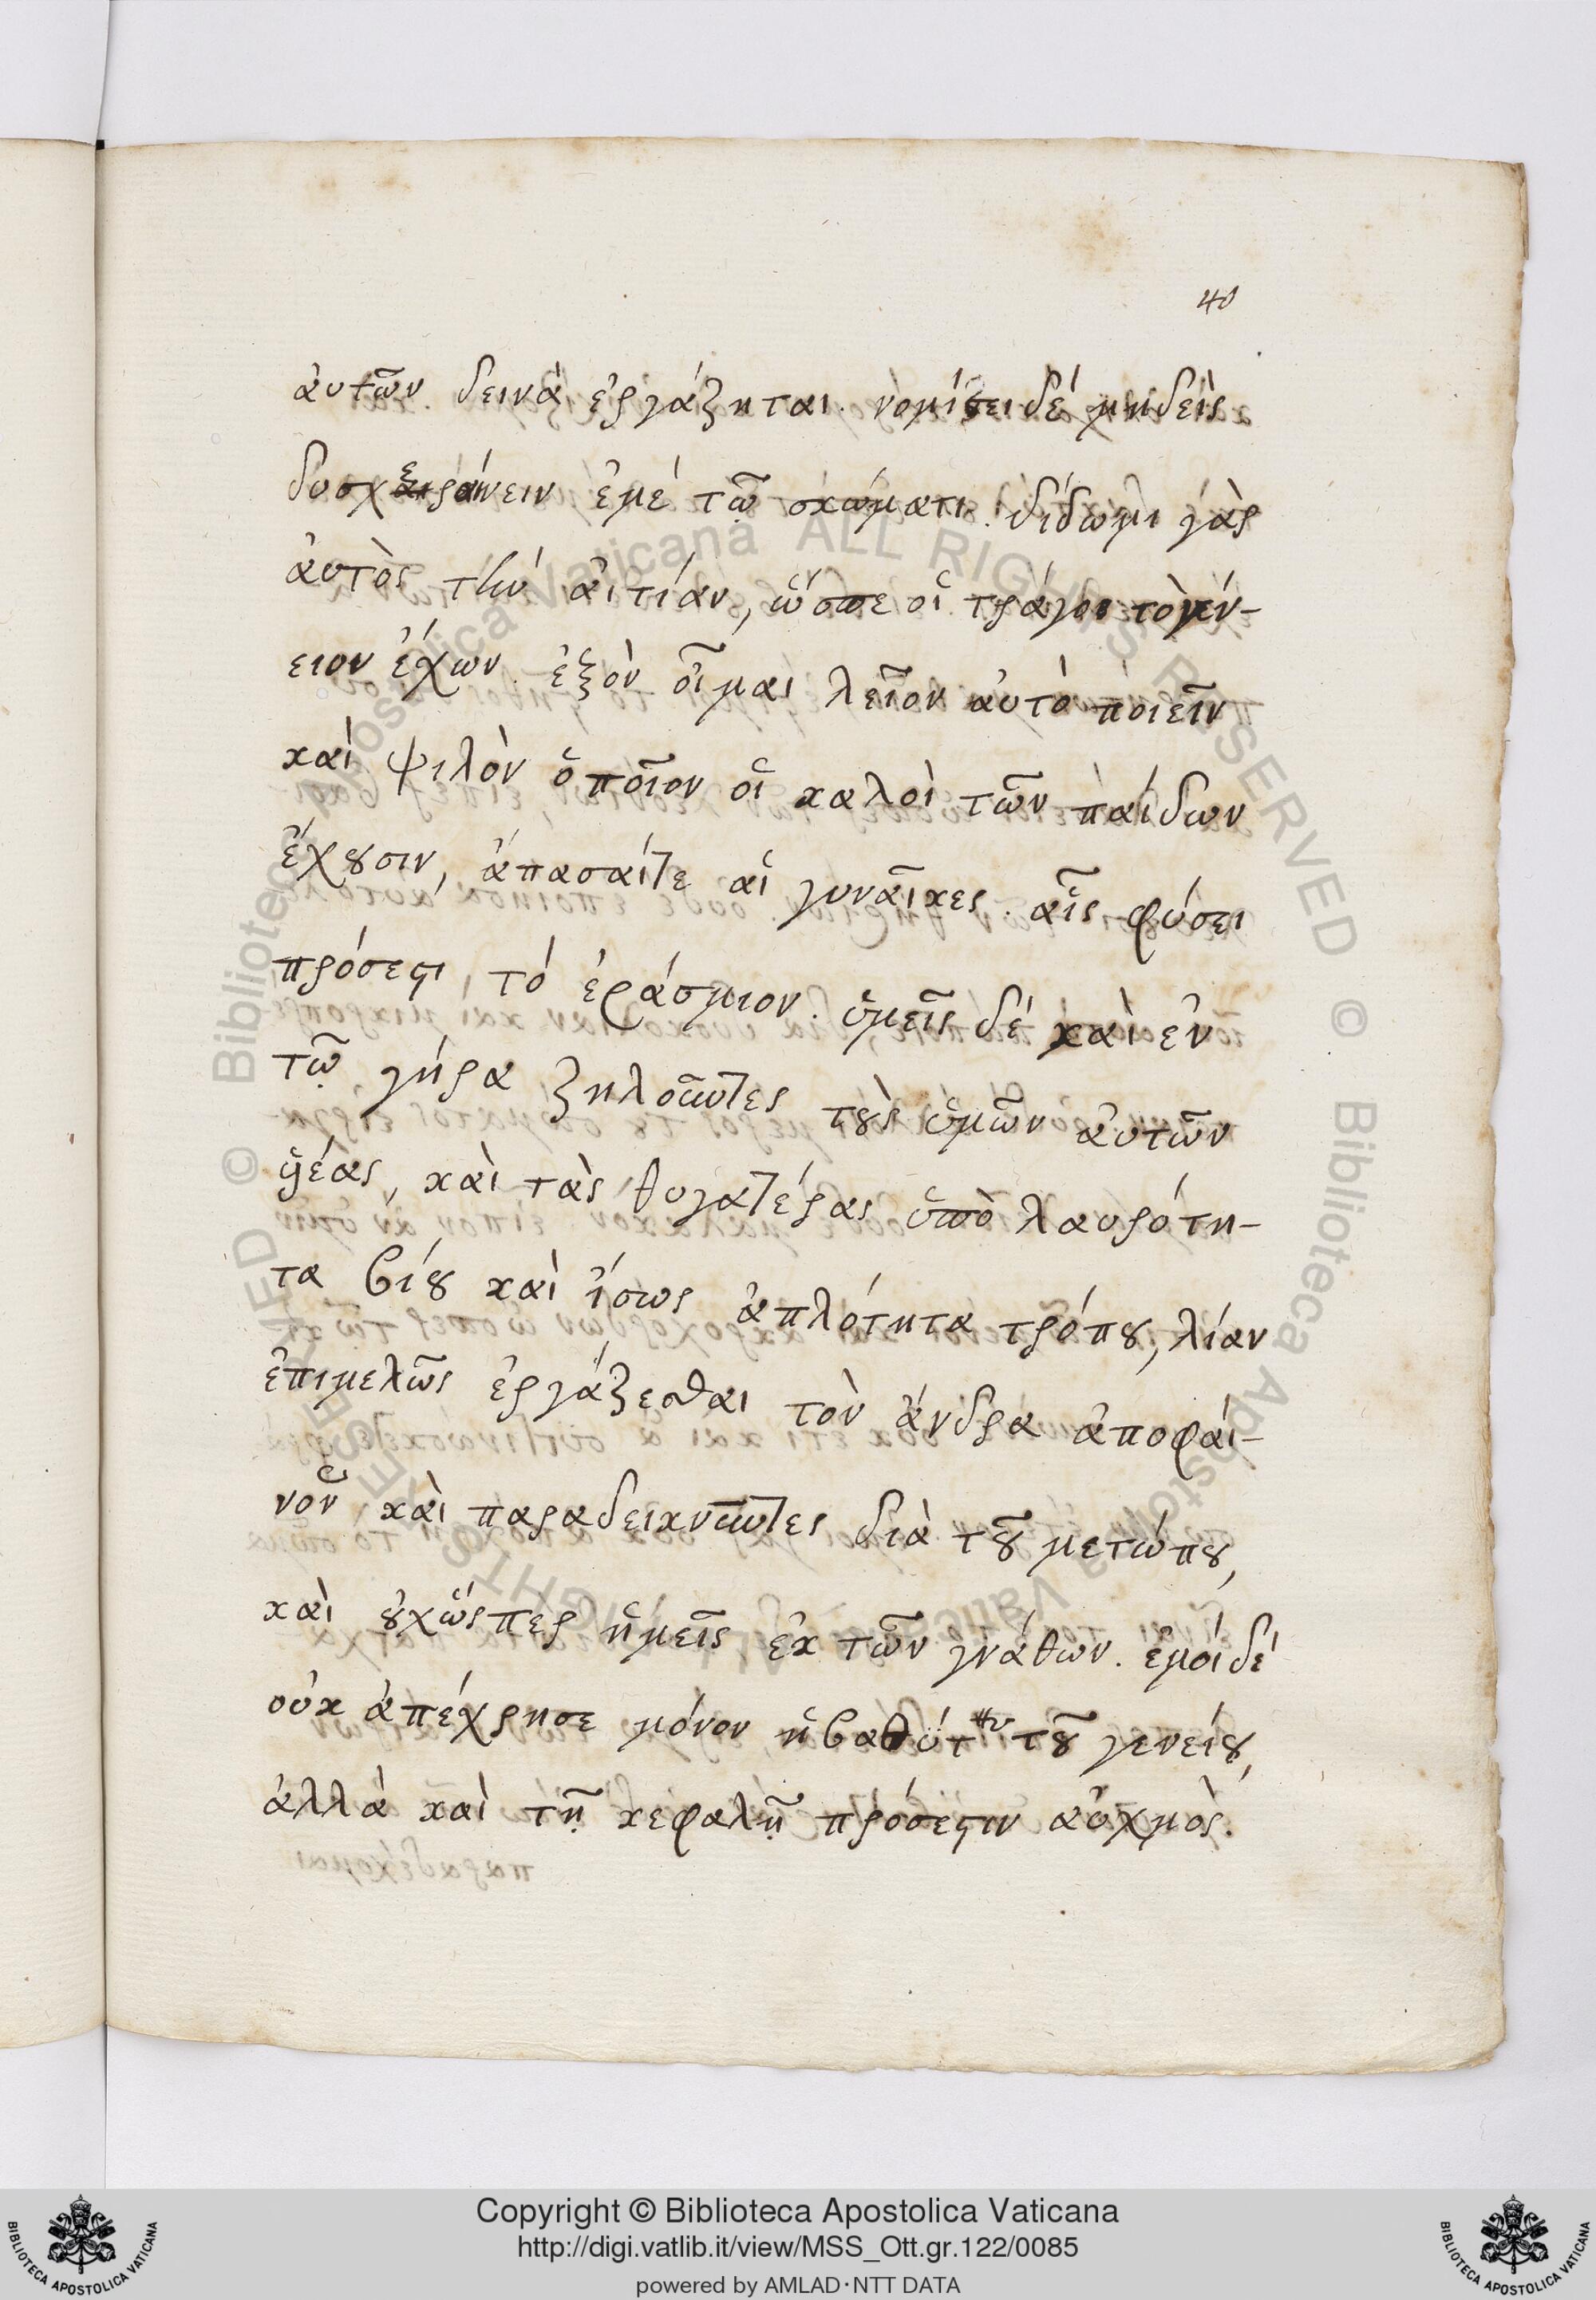 40
αὐτῶν δεινὰ ἐργάζηται. νομίσει δέ μηδεὶς
δυσχεραίνειν ἐμέ τῷ σκώματι. δίδωμι γὰρ
ἀυτὸς τὴν ἀιτίαν, ὥσπε οἱ τράγοι τὸ γέν-
ειον ἔχων. ἐξὸν οἶμαι λεῖον ἀυτὸ ποιεῖν
καὶ ψιλὸν ὁποῖον οἱ καλοὶ τῶν παίδων
ἔχουσιν, ἁπασαίτε αἱ γυναῖκες. αἷς φύσει
πρόσεστι τό ἐράσμιον. ὑμεῖς δέ καὶ ἐν
τῷ γήρα ζηλοῦντες τοὺς ὑμῶν ἀυτῶν
ὑέας, καὶ τὰς θυγατέρας ὑπὸ λαυρότη-
τα βίου καὶ ἴσως ἁπλότητα τρόπου, λίαν
ἐπιμελῶς ἐργάζεσθαι τὸν ἄνδρα ἀποφαί-
νον καὶ παραδεικνῦντες διὰ τοῦ μετώπου,
καὶ οὐχ ὥςπερ ἡμεῖς ἐκ τῶν γνάθων. ἐμοί δέ
οὐκ ἀπέχρησε μόνον ἡ βαθύτην τοῦ γενείου,
ἀλλὰ καὶ τῇ κεφαλῇ πρόσεστιν ἀυχμὸς.
Copyright © Biblioteca Apostolica Vaticana
http://digi.vatlib.it/view/MSS_Ott.gr.122/0085
powered by AMLAD·NTT DATA
BIBLIOTECA APOSTOLICA VATICANA
BIBLIOTECA APOSTOLICA VATICANA